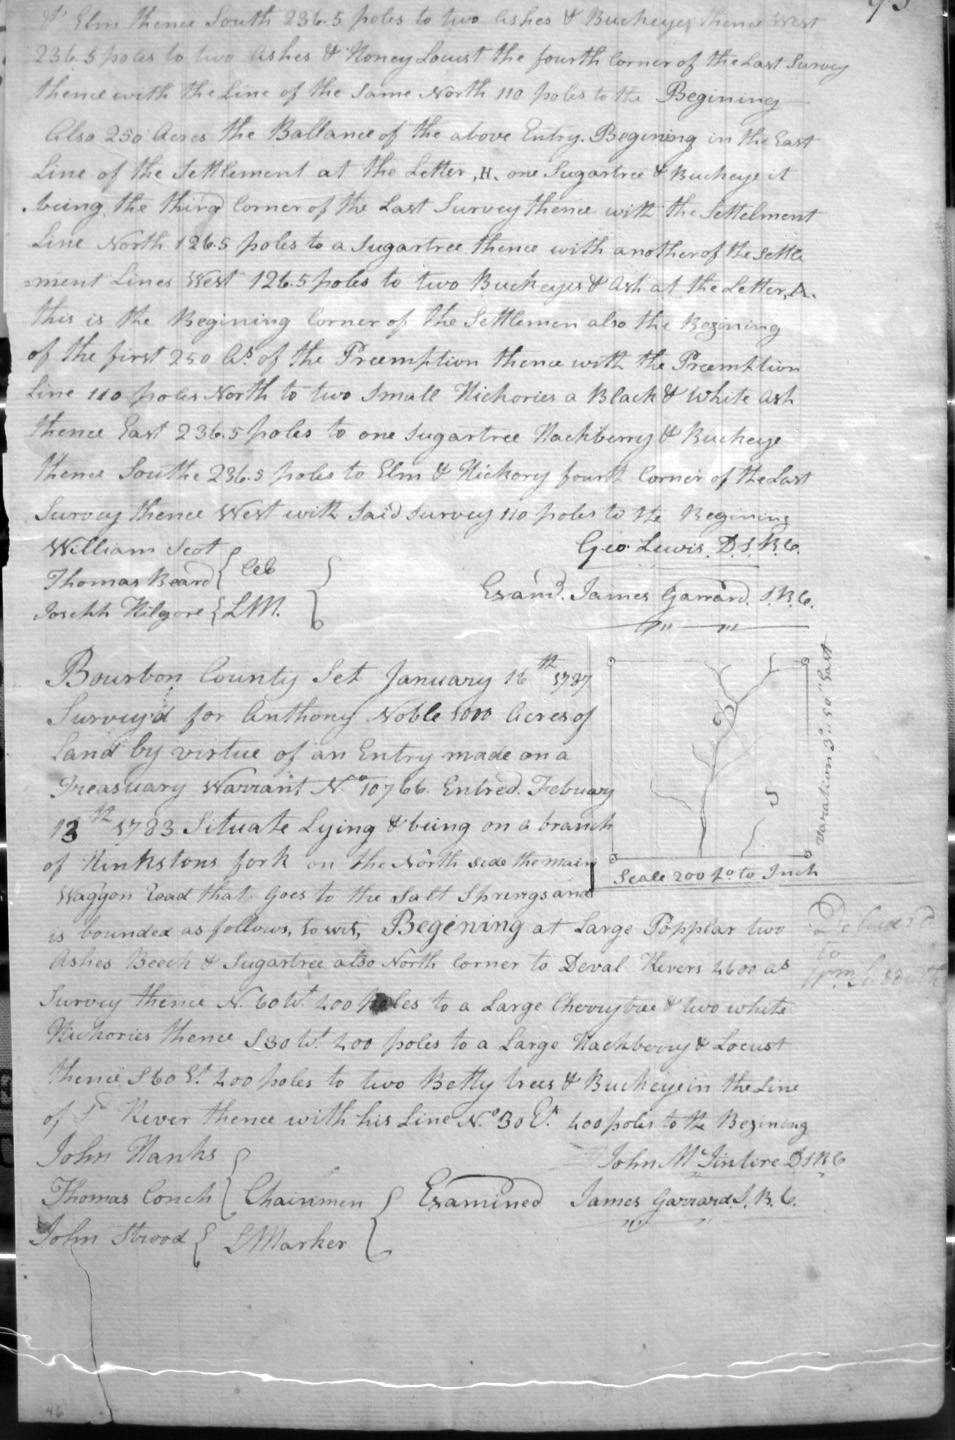 & Elm thence South 236.5 poles to two ashes & Buckeyes thence West
236.5 poles to two Ashes & Honey Locust the fourth Corner of the Last Survey
thence with the Line of the Same North 110 poles to the Begining
Also 250 Acres the Ballance of the above Entry. Begining in the East
Line of the Settlement at the Letter, H. one Sugartree & Buckeye it
being the third Corner of the Last Survey thence with the Settelment
Line North 126.5 poles to a Sugartree thence with another of the Settle
=ment Lines West 126.5 poles to two Buckeyes & Ash at the Letter, A.
this is the Begining Corner of the Settlemen also the Begining
of the first 250 As of the Preemption thence with the Preemption
Line 110 poles North to two Small Hickories a Black & White Ash
thence East 236.5 poles to one Sugartree Hackberry & Buckeye
thence Southe 236.5 poles to Elm & Hickory fourth Corner of the Last
Survey thence West with Said Survey 110 poles to the Begining
William Scot
Thomas Beard
Joseph Kilgore
LM.
Geo. Lewis. D.S.B.C.
Examd. James Garrard. S.B.C.
Bourbon County Set January 16th 1787
Survey'd for Anthony Noble 1000 Acres of
Land by virtue of an Entry made on a
Treasuary Warrant No 10766 Entred. Febuary
13th 1783 Situate Lying & being on a branch
of Hinkstons fork on the North Side the main
Waggon Road that Goes to the Salt Springs and
is bounded as follows, to wit, Begining at Large Popplar two
Ashes Beech & Sugartree also North Corner to Deval Kevers 2600 as
Survey thence N. 60 Wt. 400 poles to a Large Cherrytree & two white
Hickories thence S 30 Wt. 400 poles to a Large Hackberry & Locust
thence S 60 Et 400 poles to two Betty trees & Buckeye in the Line
of Sd Kever thence with his Line No 30 Et. 400 poles to the Begining
John Hanks
Thomas Conch
Chainmen
John Strood
S Marker
John McIntire D.S.B.C
Examined James Garrard. S. B. C.
Scale 200 po to Inch
Variation 3° 50" East
Deliverd
to
Wm